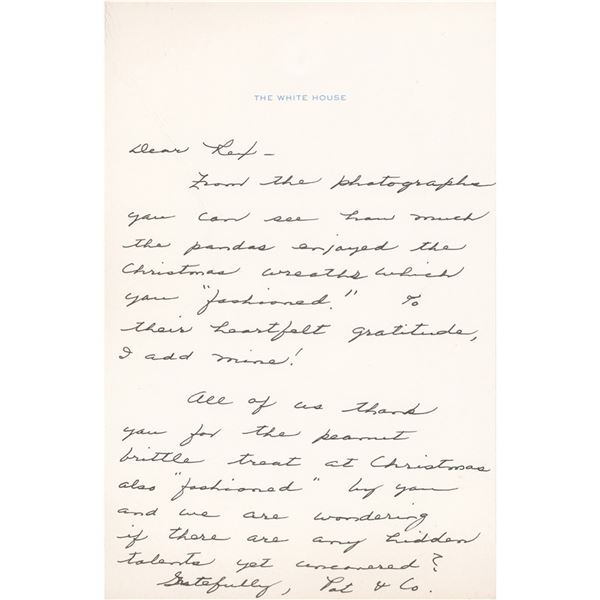 THE WHITE HOUSE
Dear Rex -
From the photographs
you can see how much
the pandas enjoyed the
Christmas wreaths which
you "fashioned." To
their heartfelt gratitude,
I add mine!
All of us thank
you for the peanut
brittle treat at Christmas
also "fashioned" by you
and we are wondering
if there are any hidden
talents yet uncovered?
Gratefully, Pat & Co.